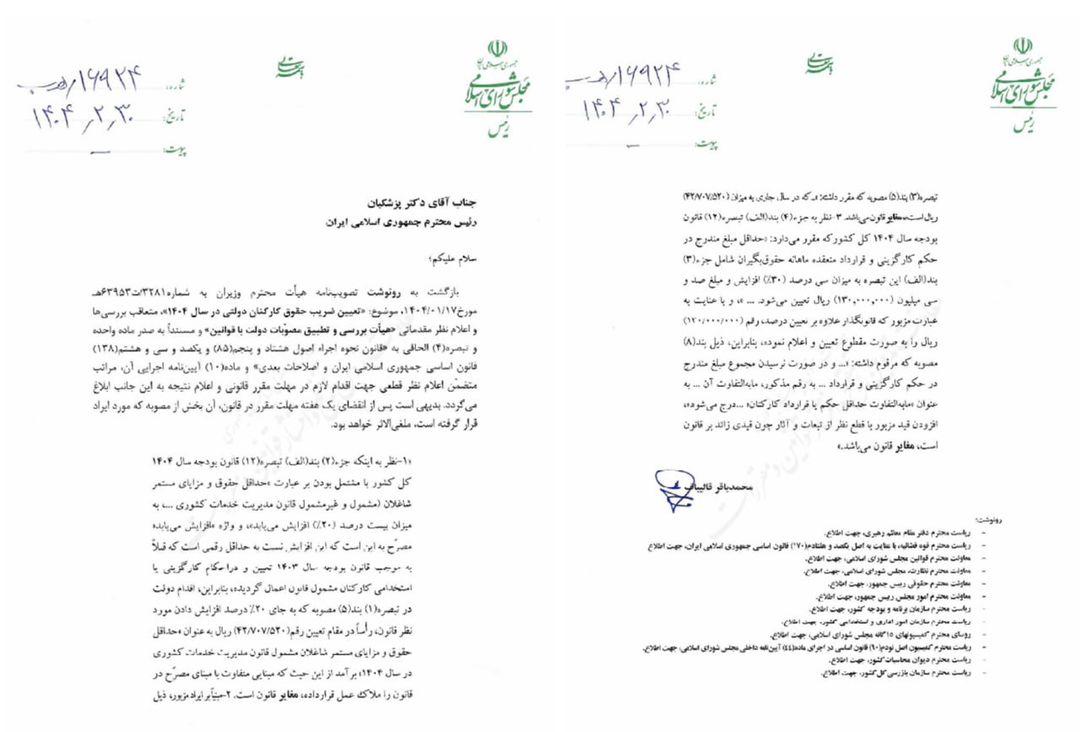 جمهوری اسلامی ایران
مجلس شورای اسلامی
رئیس
بسمه تعالی
شماره: ۱۶۹۲۴/
تاریخ: ۱۴۰۴/۲/۳۰
پیوست: ـ
جناب آقای دکتر پزشکیان
رئیس محترم جمهوری اسلامی ایران
سلام علیکم؛
بازگشت به رونوشت تصویب‌نامه هیأت محترم وزیران به شماره ۳۲۸۱/ت۶۳۹۵۳هـ
مورخ ۱۴۰۴/۰۱/۱۷، موضوع: «تعیین ضریب حقوق کارکنان دولتی در سال ۱۴۰۴»، متعاقب بررسی‌ها
و اعلام نظر مقدماتی «هیأت بررسی و تطبیق مصوبّات دولت با قوانین» و مستنداً به صدر ماده واحده
و تبصره(۴) الحاقی به «قانون نحوه اجراء اصول هشتاد و پنجم(۸۵) و یکصد و سی و هشتم(۱۳۸)
قانون اساسی جمهوری اسلامی ایران و اصلاحات بعدی» و ماده(۱۰) آیین‌نامه اجرایی آن، مراتب
متضمّن اعلام نظر قطعی جهت اقدام لازم در مهلت مقرر قانونی و اعلام نتیجه به این جانب ابلاغ
می‌گردد. بدیهی است پس از انقضای یک هفته مهلت مقرر در قانون، آن بخش از مصوبه که مورد ایراد
قرار گرفته است، ملغی‌الاثر خواهد بود.
«۱-نظر به اینکه جزء(۲) بند(الف) تبصره(۱۲) قانون بودجه سال ۱۴۰۴
کل کشور با مشتمل بودن بر عبارت «حداقل حقوق و مزایای مستمر
شاغلان (مشمول و غیرمشمول قانون مدیریت خدمات کشوری ...، به
میزان بیست درصد (۲۰٪) افزایش می‌یابد»، و واژه «افزایش می‌یابد»
مصرّح به این است که این افزایش نسبت به حداقل رقمی است که قبلاً
به موجب قانون بودجه سال ۱۴۰۳ تعیین و در احکام کارگزینی یا
استخدامی کارکنان مشمول قانون اعمال گردیده، بنابراین، اقدام دولت
در تبصره(۱) بند(۵) مصوبه که به جای ۲۰٪ درصد افزایش دادن مورد
نظر قانون، رأساً در مقام تعیین رقم(۴۲/۷۰۷/۵۲۰) ریال به عنوان «حداقل
حقوق و مزایای مستمر شاغلان مشمول قانون مدیریت خدمات کشوری
در سال ۱۴۰۴» برآمد از این حیث که مبنایی متفاوت با مبنای مصرّح در
قانون را ملاک عمل قرارداده، مغایر قانون است. ۲-مبنیاً بر ایراد مزبور، ذیل
جمهوری اسلامی ایران
مجلس شورای اسلامی
رئیس
بسمه تعالی
شماره: ۱۶۹۲۴/
تاریخ: ۱۴۰۴/۲/۳۰
پیوست: ـ
تبصره(۳) بند(۵) مصوبه که مقرر داشته: «ـ که در سال جاری به میزان (۴۲/۷۰۷/۵۲۰)
ریال است، مغایر قانون می‌باشد. ۳-نظر به جزء(۴) بند(الف) تبصره(۱۲) قانون
بودجه سال ۱۴۰۴ کل کشور که مقرر می‌دارد: «حداقل مبلغ مندرج در
حکم کارگزینی و قرارداد منعقده ماهانه حقوق‌بگیران شامل جزء(۳)
بند(الف) این تبصره به میزان سی درصد (۳۰٪) افزایش و مبلغ صد و
سی میلیون (۱۳۰,۰۰۰,۰۰۰) ریال تعیین می‌شود. ... »، و با عنایت به
عبارت مزبور که قانونگذار علاوه بر تعیین درصد، رقم (۱۳۰/۰۰۰/۰۰۰)
ریال را به صورت مقطوع تعیین و اعلام نموده، بنابراین، ذیل بند(۸)
مصوبه که مرقوم داشته: «... و در صورت نرسیدن مجموع مبلغ مندرج
در حکم کارگزینی و قرارداد ... به رقم مذکور، مابه‌التفاوت آن ... به
عنوان «مابه‌التفاوت حداقل حکم یا قرارداد کارکنان» ...درج می‌شود»،
افزودن قید مزبور با قطع نظر از تبعات و آثار چون قیدی زائد بر قانون
است، مغایر قانون می‌باشد.»
محمدباقر قالیباف
رونوشت:
- ریاست محترم دفتر مقام معظم رهبری، جهت اطلاع.
- ریاست محترم قوه قضائیه، با عنایت به اصل یکصد و هفتادم(۱۷۰) قانون اساسی جمهوری اسلامی ایران، جهت اطلاع
- معاونت محترم قوانین مجلس شورای اسلامی، جهت اطلاع.
- معاونت محترم نظارت، مجلس شورای اسلامی، جهت اطلاع.
- معاونت محترم حقوقی رییس جمهور، جهت اطلاع.
- معاونت محترم امور مجلس رییس جمهور، جهت اطلاع.
- ریاست محترم سازمان برنامه و بودجه کشور، جهت اطلاع.
- ریاست محترم سازمان امور اداری و استخدامی کشور، جهت اطلاع.
- روسای محترم کمیسیونهای ۱۵ گانه مجلس شورای اسلامی، جهت اطلاع.
- ریاست محترم کمیسیون اصل نودم(۹۰) قانون اساسی در اجرای ماده(۴۴) آیین‌نامه داخلی مجلس شورای اسلامی، جهت اطلاع.
- ریاست محترم دیوان محاسبات کشور، جهت اطلاع.
- ریاست محترم سازمان بازرسی کل کشور، جهت اطلاع.